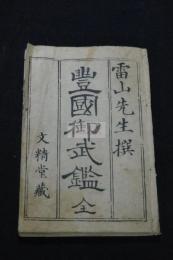 雷山先生撰
豐國御武鑑 全
文精堂藏